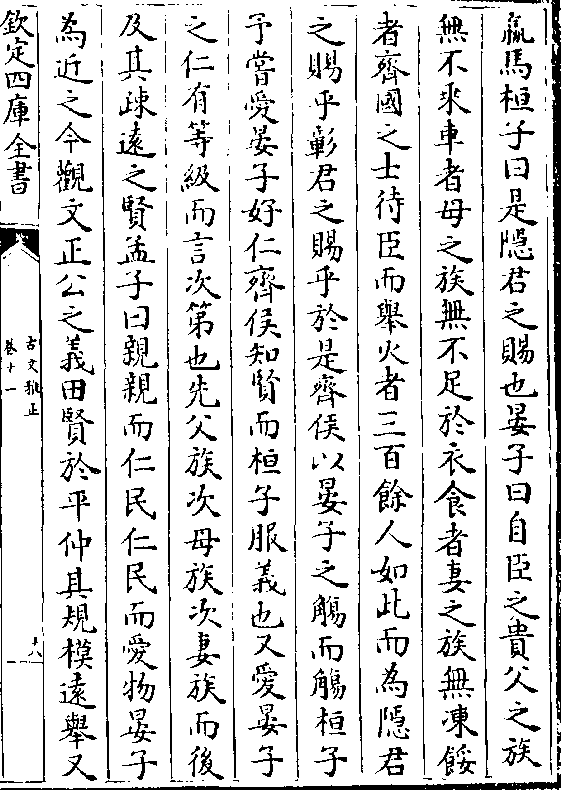 羸馬桓子曰是隱君之賜也晏子曰自臣之貴父之族
無不乘車者母之族無不足於衣食者妻之族無凍餒
者齊國之士待臣而舉火者三百餘人如此而為隱君
之賜乎彰君之賜乎於是齊侯以晏子之觴而觴桓子
予嘗愛晏子好仁齊侯知賢而桓子服義也又愛晏子
之仁有等級而言次第也先父族次母族次妻族而後
及其疎遠之賢孟子曰親親而仁民仁民而愛物晏子
為近之今觀文正公之義田賢於平仲其規模遠舉又
欽定四庫全書
古文雅正
卷十一
十八